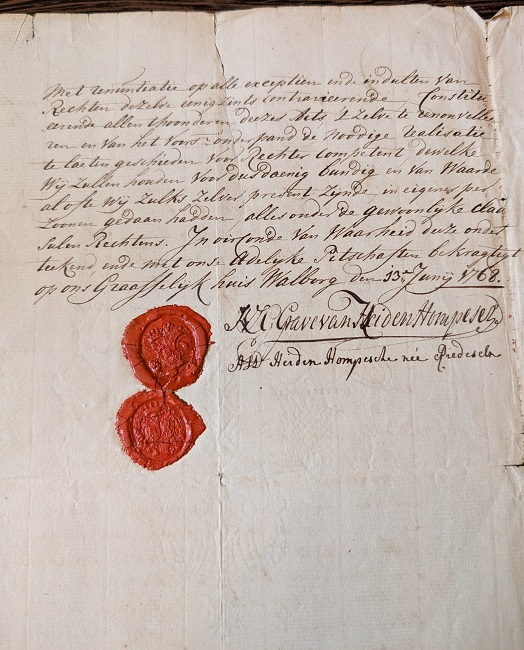 Met renuntiatie op alle exceptien ende indulten van
Rechten dezelve eenigzints contravieerende Constitu
eerende allen thoonderen deezes Acts t Zelve te renouvelle
ren en van het voors: onderpand de Noodige realisatie
te laeten geschieden voor Rechter Competent dewelke
Wij Zullen houden voor dusdaenig bundig en van Waarde
al ofte Wij Zulks Zelver present Zynde in eigener per
Zoonen gedaan hadden alles onder de gewoonlyke Clau
Sulen Rechtens. In oirconde Van Waarheid deze onder
teekend ende met onse Adelyke Petschaften bekragtigt
op ons Graaffelyk huis Walborg den 13n Junij 1768.
Grave van Heiden Hompesch
Heiden Hompesche née Riedeseln